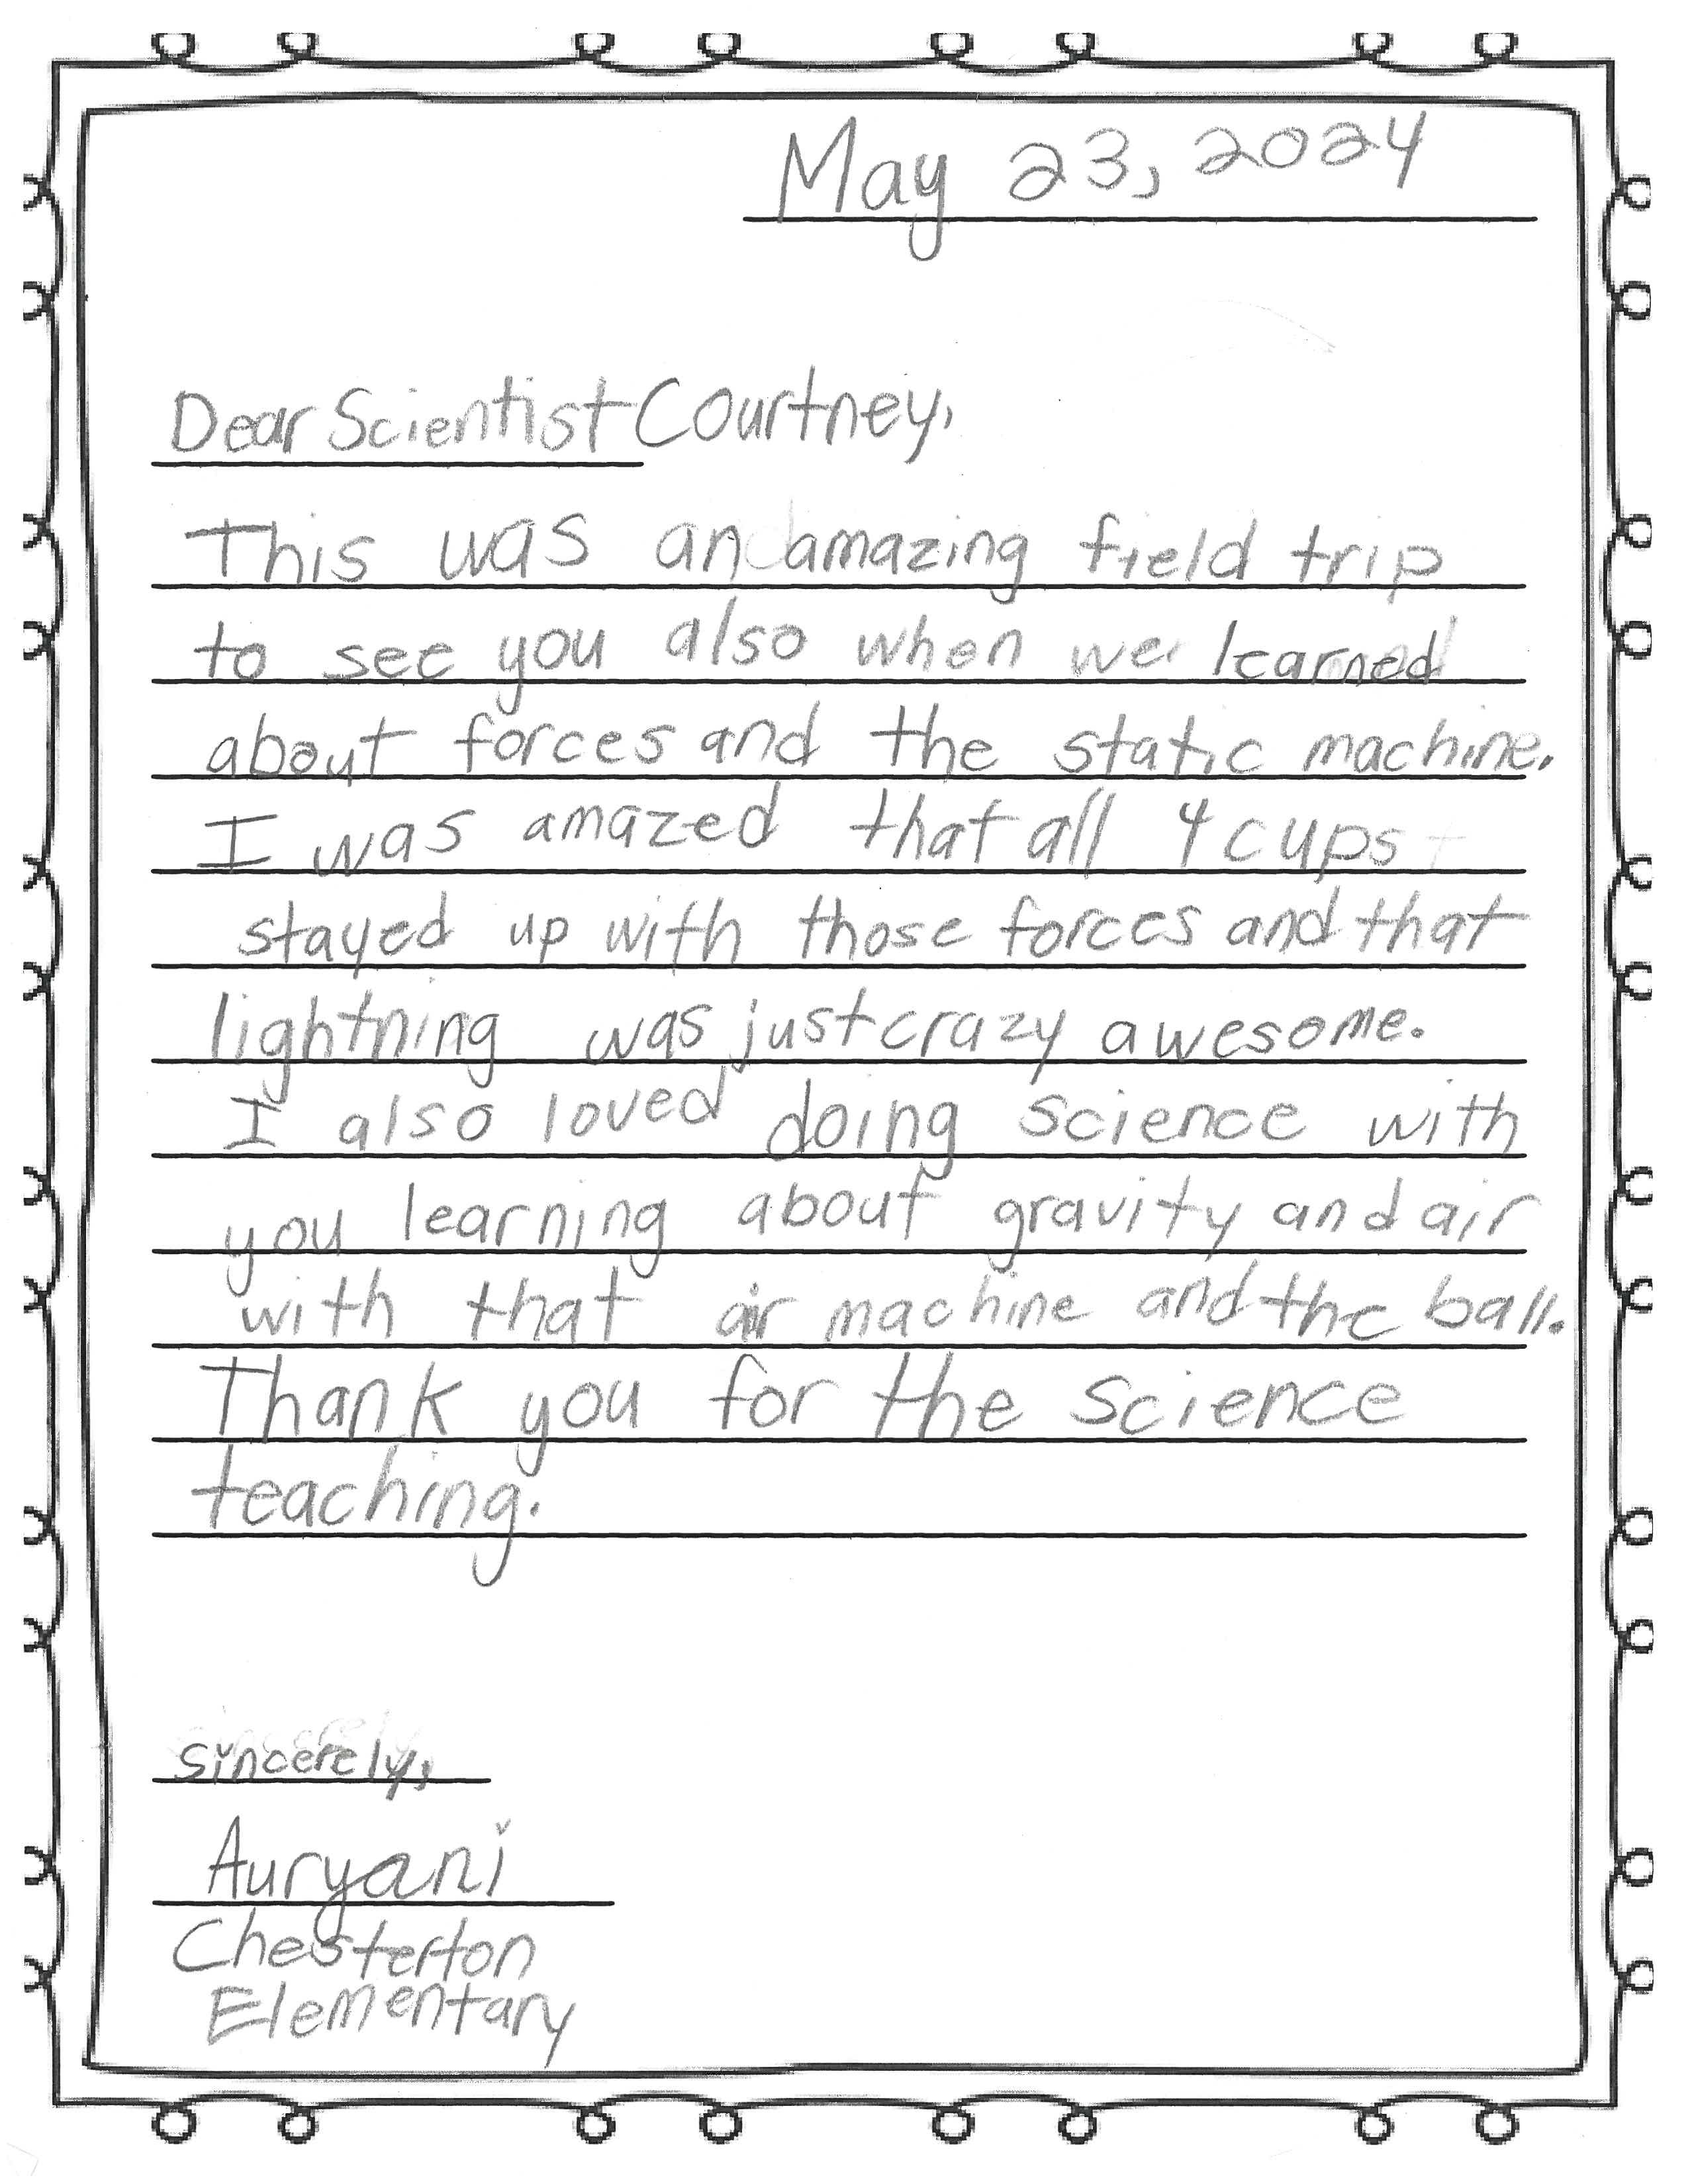 May 23, 2024
Dear Scientist Courtney,
This was an amazing field trip
to see you also when we learned
about forces and the static machine.
I was amazed that all 4 cups
stayed up with those forces and that
lightning was just crazy awesome.
I also loved doing science with
you learning about gravity and air
with that air machine and the ball.
Thank you for the science
teaching.
sincerely,
Auryani
Chesterton
Elementary